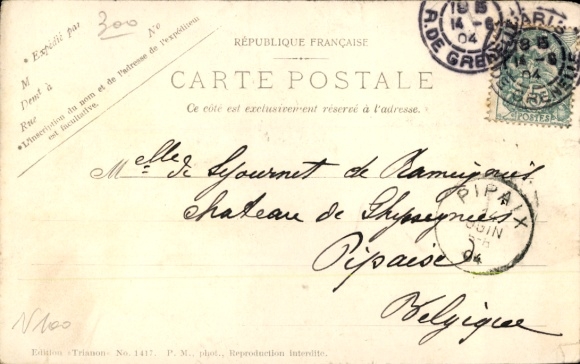 300
* Expédié par
No
M
Demt à
Rue
* L'inscription du nom et de l'adresse de l'expéditeur
est facultative.
RÉPUBLIQUE FRANÇAISE
CARTE POSTALE
Ce côté est exclusivement réservé à l'adresse.
R. DE GRENELLE
14 - 6
04
PARIS
14 - 6
04
R. DE GRENELLE
POSTES
Melle de Séjournet de Rameignies
chateau de
Pipaix
Belgique
PIPAIX
JUIN
04
V100
Edition «Trianon» No. 1417. P. M., phot., Reproduction interdite.